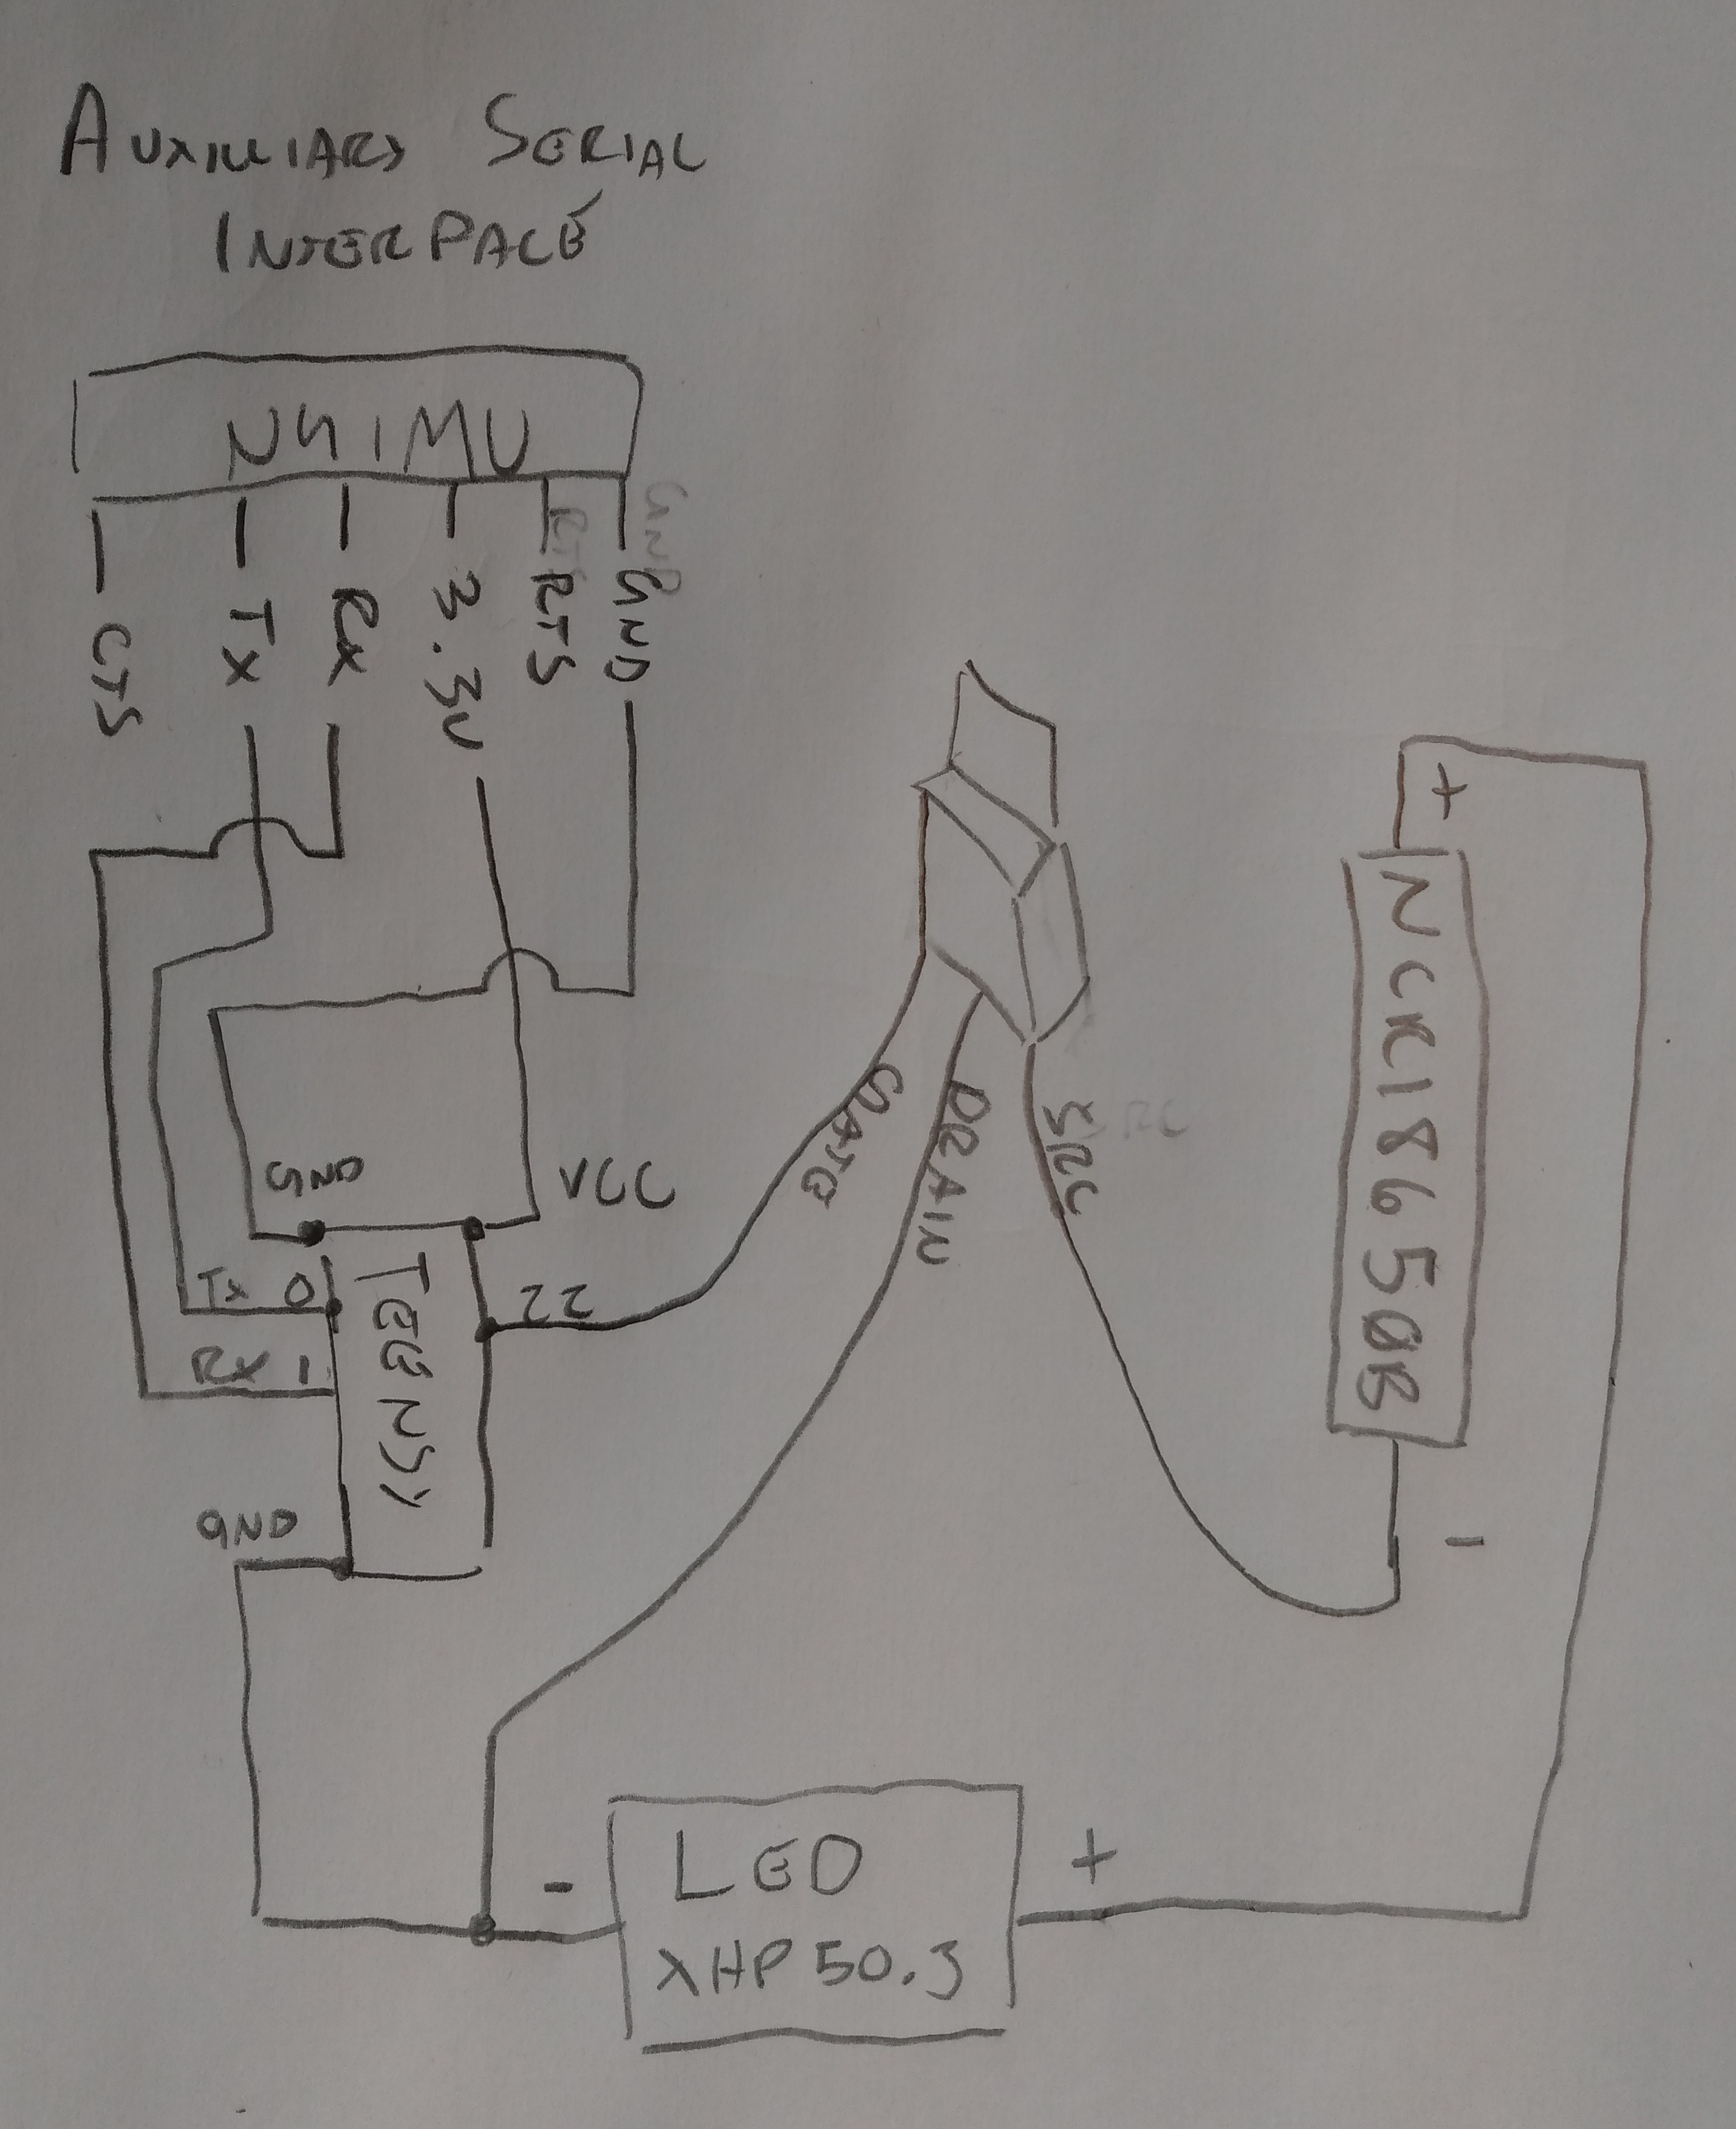 AUXILIARY SERIAL
INTERFACE
NGIMU
CTS
Tx
Rx
3.3V
RTS
GND
GND
VCC
Tx 0
22
RX 1
TEENSY
GND
GATE
DRAIN
SRC
+
NCR18650B
-
-
+
LED
XHP50.3